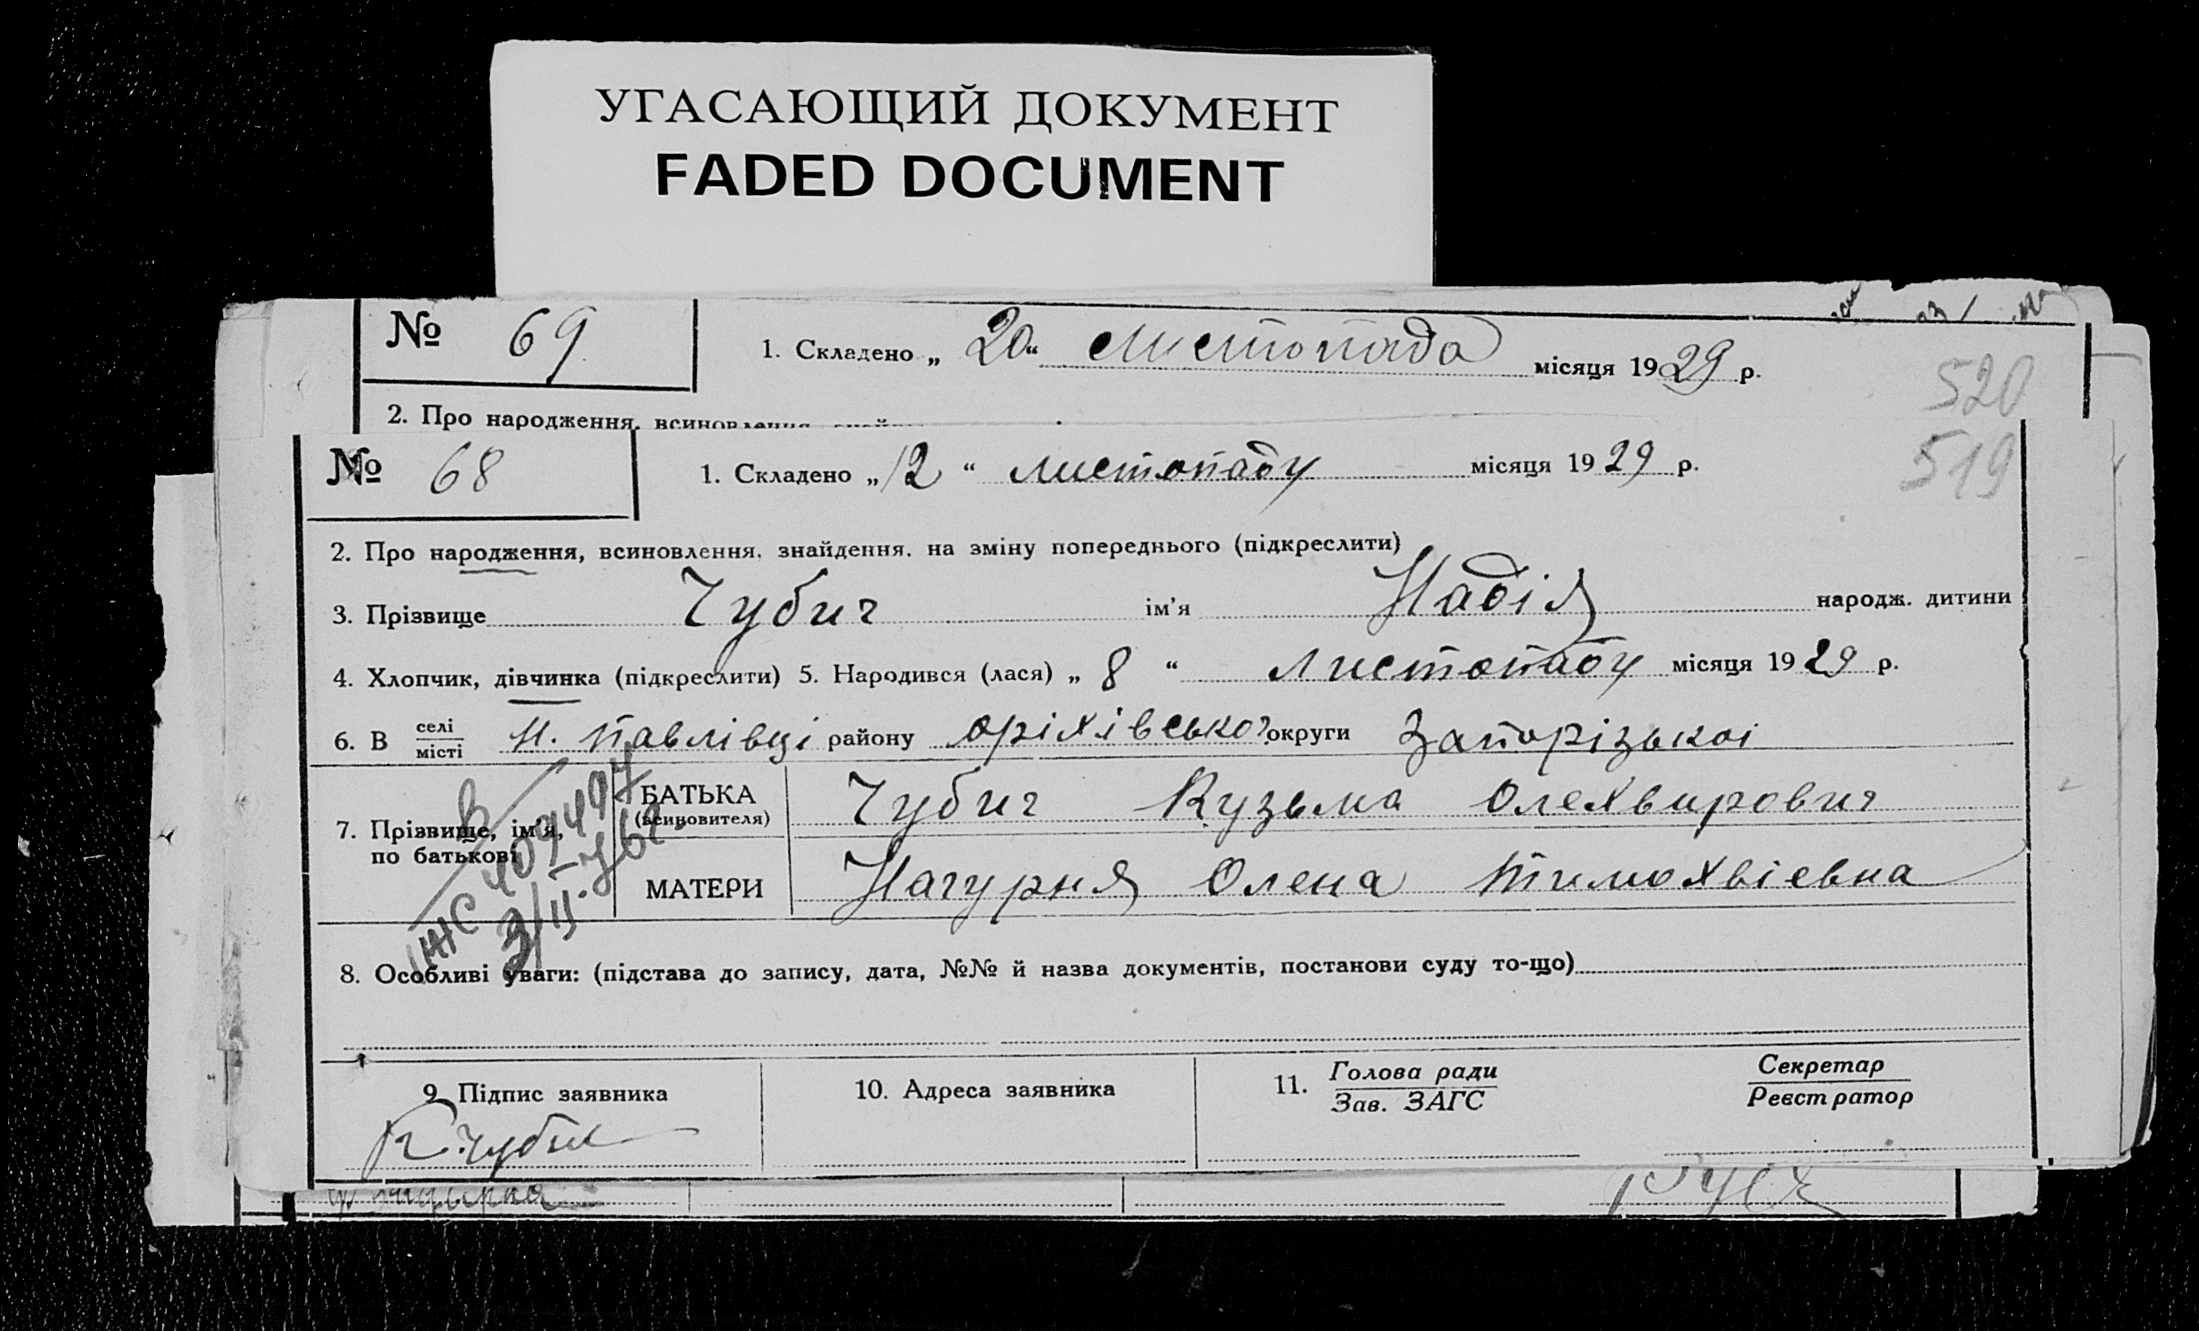 УГАСАЮЩИЙ ДОКУМЕНТ
FADED DOCUMENT
№ 69
1. Складено „ 20 “ листопада місяця 1929 р.
520
2. Про народження, всиновлення
№ 68
1. Складено „ 12 “ листопаду місяця 1929 р.
519
2. Про народження, всиновлення, знайдення, на зміну попереднього (підкреслити)
3. Прізвище Чубич ім'я Надія народж. дитини
4. Хлопчик, дівчинка (підкреслити) 5. Народився (лася) „ 8 “ листопаду місяця 1929 р.
6. В селі/місті Н. Павлівці району Оріхівської округи Запорізькоі
7. Прізвище, ім'я, по батькові
БАТЬКА (всиновителя) Чубич Кузьма Олехвирович
МАТЕРИ Нагурня Олена Тимохвієвна
ІЖС 409497
8. Особливі уваги: (підстава до запису, дата, №№ й назва документів, постанови суду то-що)
9. Підпис заявника
К. Чубич
10. Адреса заявника
11. Голова ради
Зав. ЗАГС
Секретар
Реєстратор